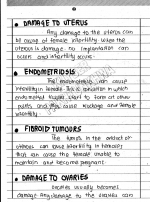 • DAMAGE TO UTERUS
Any damage to the uterus can
be cause of female infertility. When the
uterus is damage no implantation can
occur and infertility occurs.
• ENDOMETRIOSIS
The endometriosis can cause
infertility in female. This is condition in which
endometrial tissues start to form at other
parts and this cause blockage and female
infertility.
• FIBROID TUMORS
The tumors in the
uterus can cause infertility in females
that can cause the female unable to
maintain and become pregnant.
• DAMAGE TO OVARIES
Ovaries usually becomes
damage. Any damage to the ovaries can